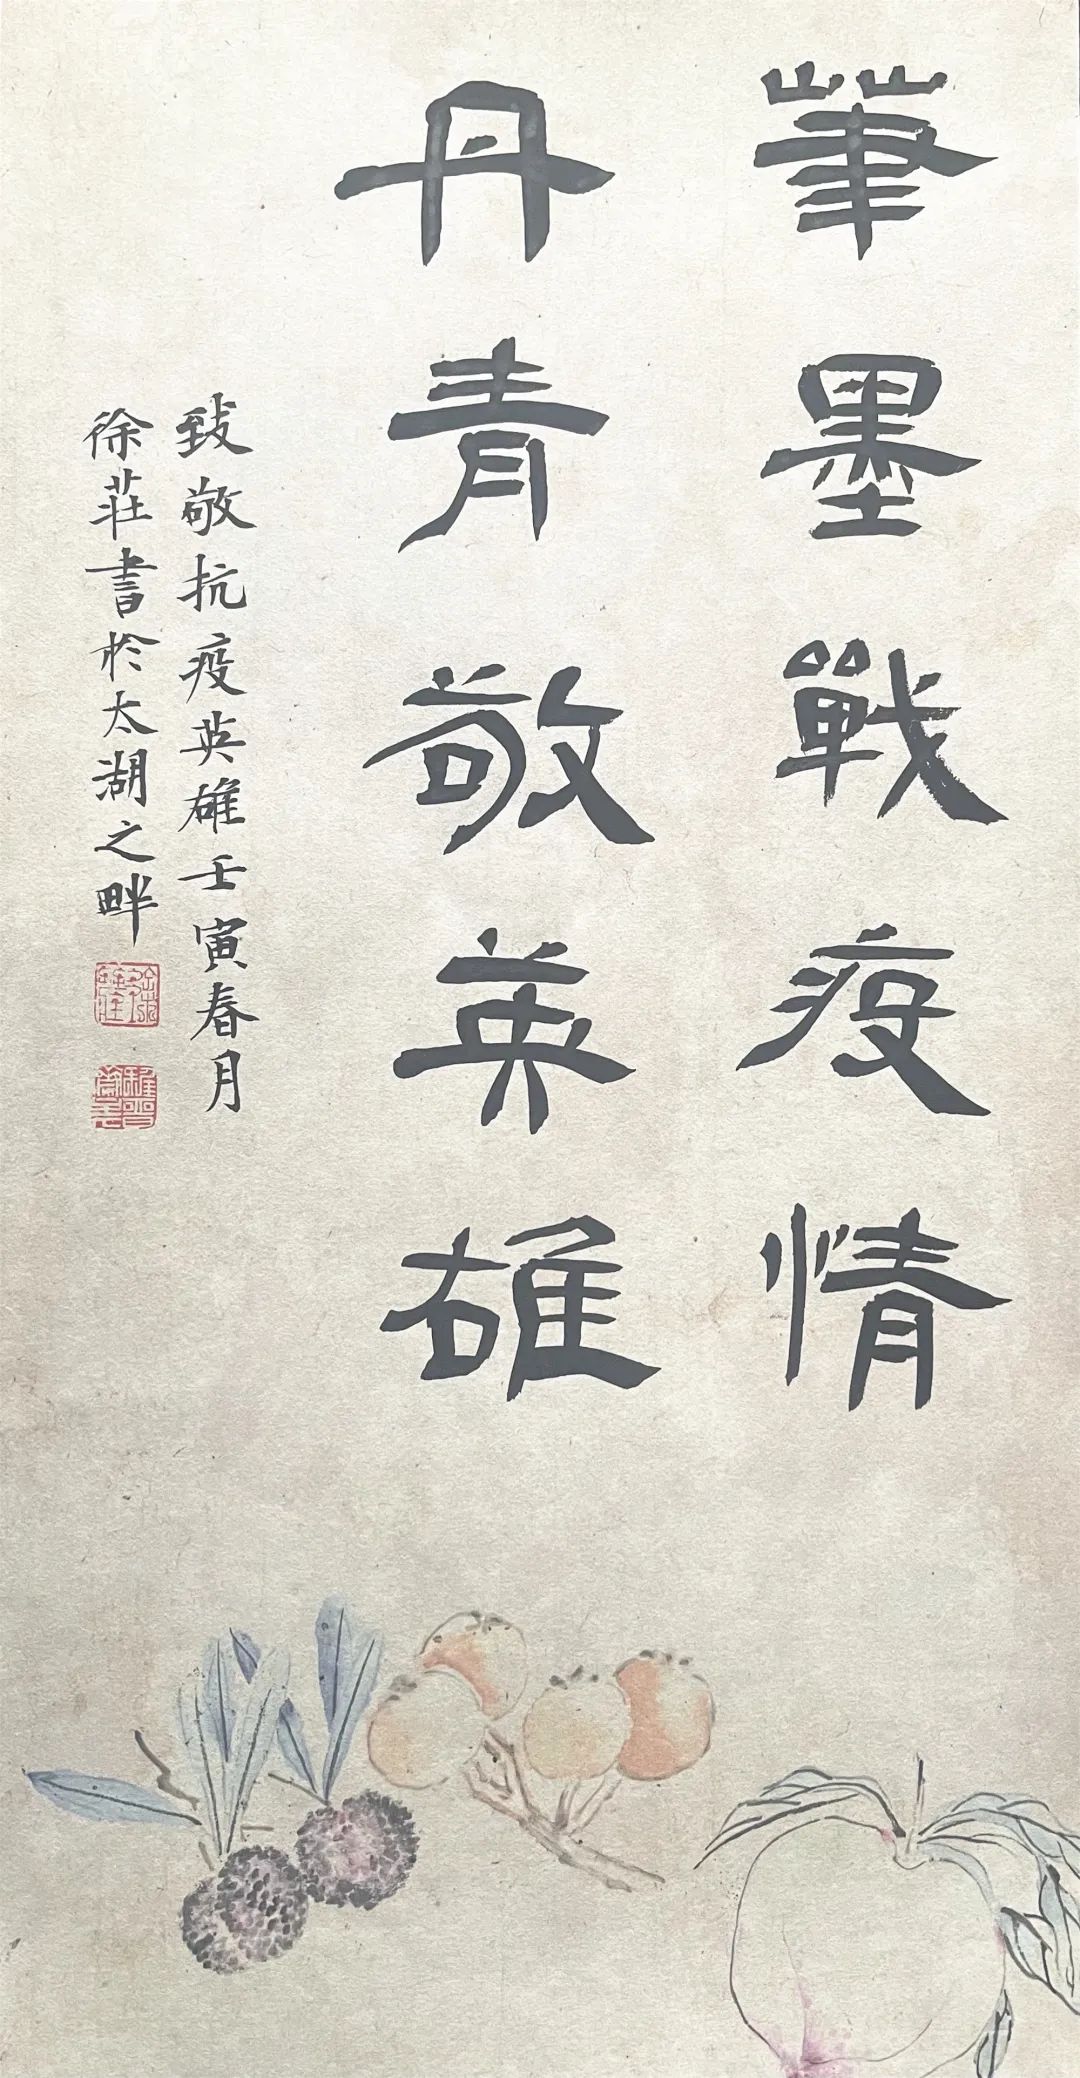 筆墨戰疫情
丹青敬英雄
致敬抗疫英雄壬寅春月
徐莊書於太湖之畔
徐莊